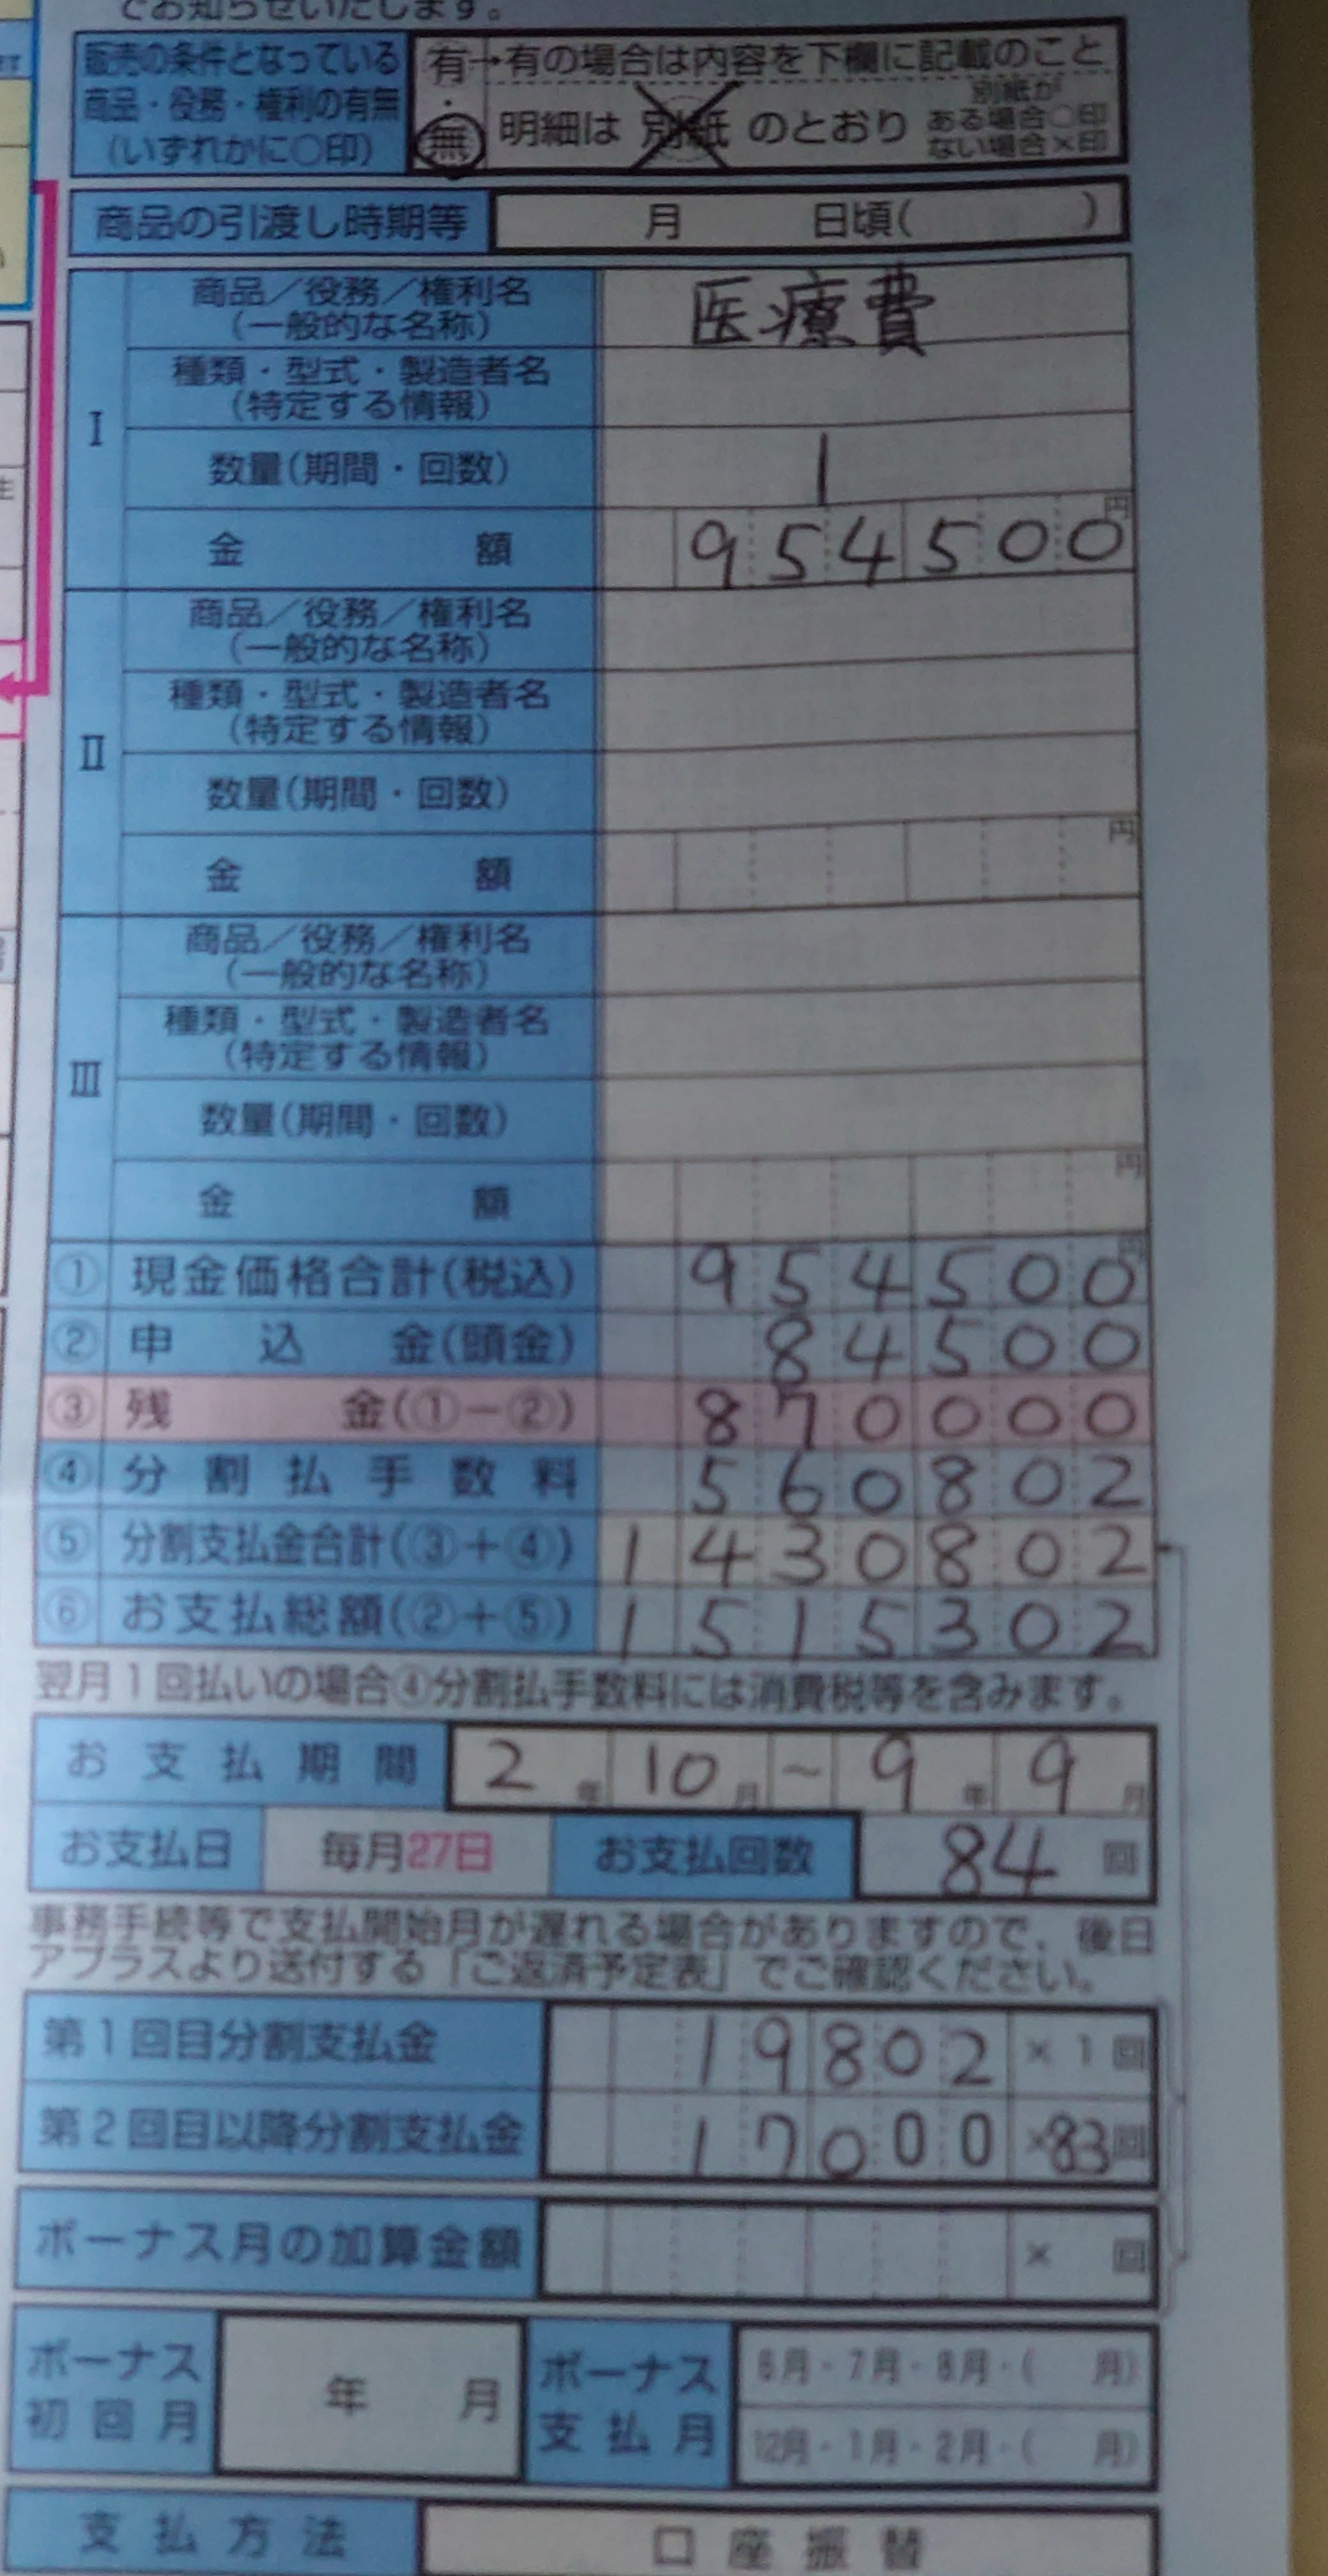 でお知らせいたします。
販売の条件となっている
商品・役務・権利の有無
(いずれかに○印)
有→有の場合は内容を下欄に記載のこと
・
無 明細は 別紙 のとおり 別紙が
ある場合○印
ない場合×印
商品の引渡し時期等 月 日頃( )
I
商品/役務/権利名
(一般的な名称)
医療費
種類・型式・製造者名
(特定する情報)
数量(期間・回数) 1
金額 954500円
II
商品/役務/権利名
(一般的な名称)
種類・型式・製造者名
(特定する情報)
数量(期間・回数)
金額 円
III
商品/役務/権利名
(一般的な名称)
種類・型式・製造者名
(特定する情報)
数量(期間・回数)
金額 円
① 現金価格合計(税込) 954500円
② 申込金(頭金) 84500
③ 残金(①-②) 870000
④ 分割払手数料 560802
⑤ 分割支払金合計(③+④) 1430802
⑥ お支払総額(②+⑤) 1515302
翌月1回払いの場合④分割払手数料には消費税等を含みます。
お支払期間 2年10月~9年9月
お支払日 毎月27日 お支払回数 84回
事務手続等で支払開始月が遅れる場合がありますので、後日
アプラスより送付する「ご返済予定表」でご確認ください。
第1回目分割支払金 19802 ×1回
第2回目以降分割支払金 17000 ×83回
ボーナス月の加算金額 × 回
ボーナス
初回月
年 月
ボーナス
支払月
6月・7月・8月・( 月)
12月・1月・2月・( 月)
支払方法 口座振替